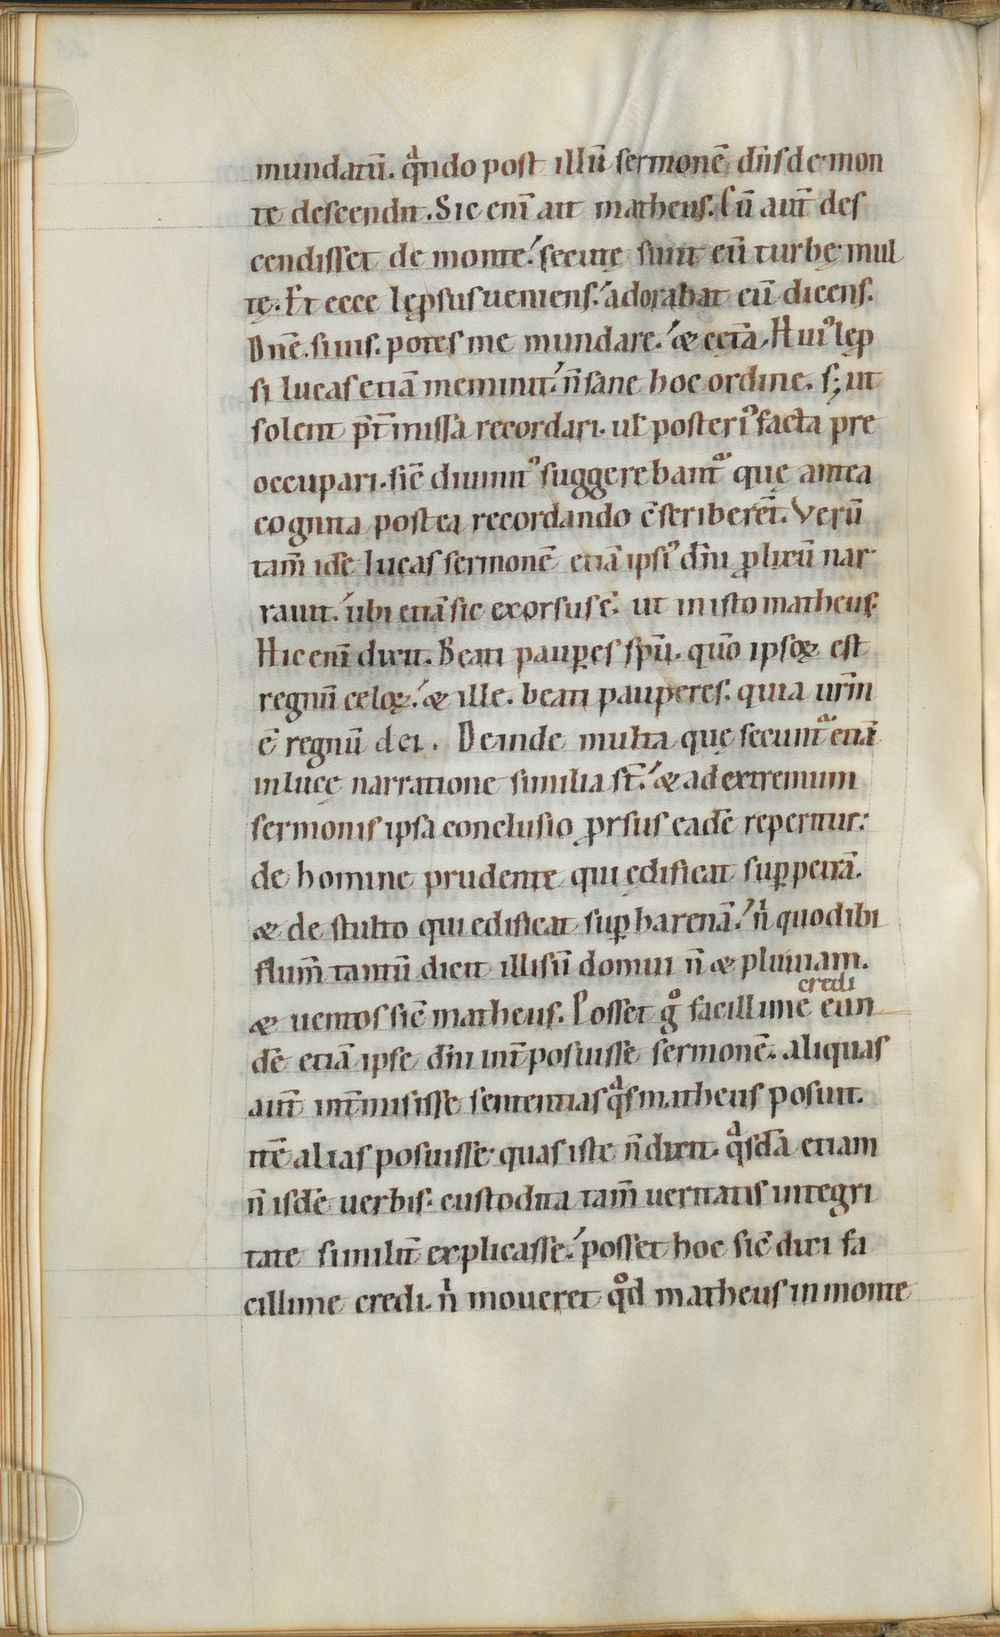 mundatū. qͣndo post illū sermonē dn̄s de mon
te descendit. Sic enī ait matheus. Cū aut̄ des
cendisset de monte.ˊ secutę sunt eū turbę mul
tę. Et ecce lęprsus ueniens.ˊ adorabat eū dicens.
Dn̄e. si uis. potes me mundare.ˊ & cet̄a. Hui᾽ lęp
si lucas etiā meminit.ˊ n̄ sane hoc ordine. s; ut
solent p̄t̄missa recordari. ul̄ posteri᾽ facta pre
occupari. sic̄ diuinit᾽ suggerebant᷑ quę antea
cognita postea recordando c̄scriberēt. Verū
tam̄ idē lucas sermonē etiā ipsi᾽ dn̄i ꝓlixū nar
rauit.ˊ ubi etiā sic exorsus ē. ut in isto matheus.
Hic enī dixit. Beati paup̲es sp̄u. qūo ipsoꝝ est
regnū celoꝝ.ˊ & ille. beati pauperes. quia ur̄m
ē regnū dei. Deinde multa quę secunt᷑ etiā
in lucę narratione similia st̄.ˊ & ad extremum
sermonis ipsa conclusio ꝓrsus eadē reperitur.
de homine prudente qui ędificat sup̲ petrā.
& de stulto qui edificat sup̲ harenā.ˊ nͥ quod ibi
flum̄ tantū dicit illisū domui n̄ & pluuiam.
credi
& uentos sic̄ matheus. Posset gͦ facillime eun
dē etiā ipse dn̄i int̄posuisse sermonē. aliquas
aut̄ int̄misisse sententias qͣs matheus posuit.
itē alias posuisse quas iste n̄ dixit. qͣsdā etiam
n̄ isdē uerbis. custodita tam̄ ueritatis integri
tate similit̄ explicasse.ˊ posset hoc sic̄ dixi fa
cillime credi. nͥ moueret qͦd matheus in monte